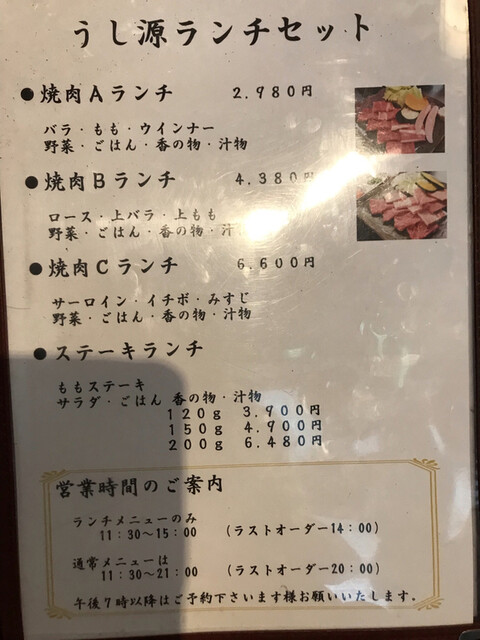 うし源ランチセット
●焼肉Aランチ 2.980円
バラ・もも・ウインナー
野菜・ごはん・香の物・汁物
●焼肉Bランチ 4.380円
ロース・上バラ・上もも
野菜・ごはん・香の物・汁
●焼肉Cランチ 6.600円
サーロイン・イチボ・みすじ
野菜・ごはん・香の物・汁物
●ステーキランチ
ももステーキ
サラダ・ごはん 香の物・汁物
120g 3.900円
150g 4.900円
200g 6.480円
営業時間のご案内
ランチメニューのみ
11:30~15:00 (ラストオーダー14:00)
通常メニューは
11:30~21:00 (ラストオーダー20:00)
午後7時以降はご予約下さいます様お願いいたします。